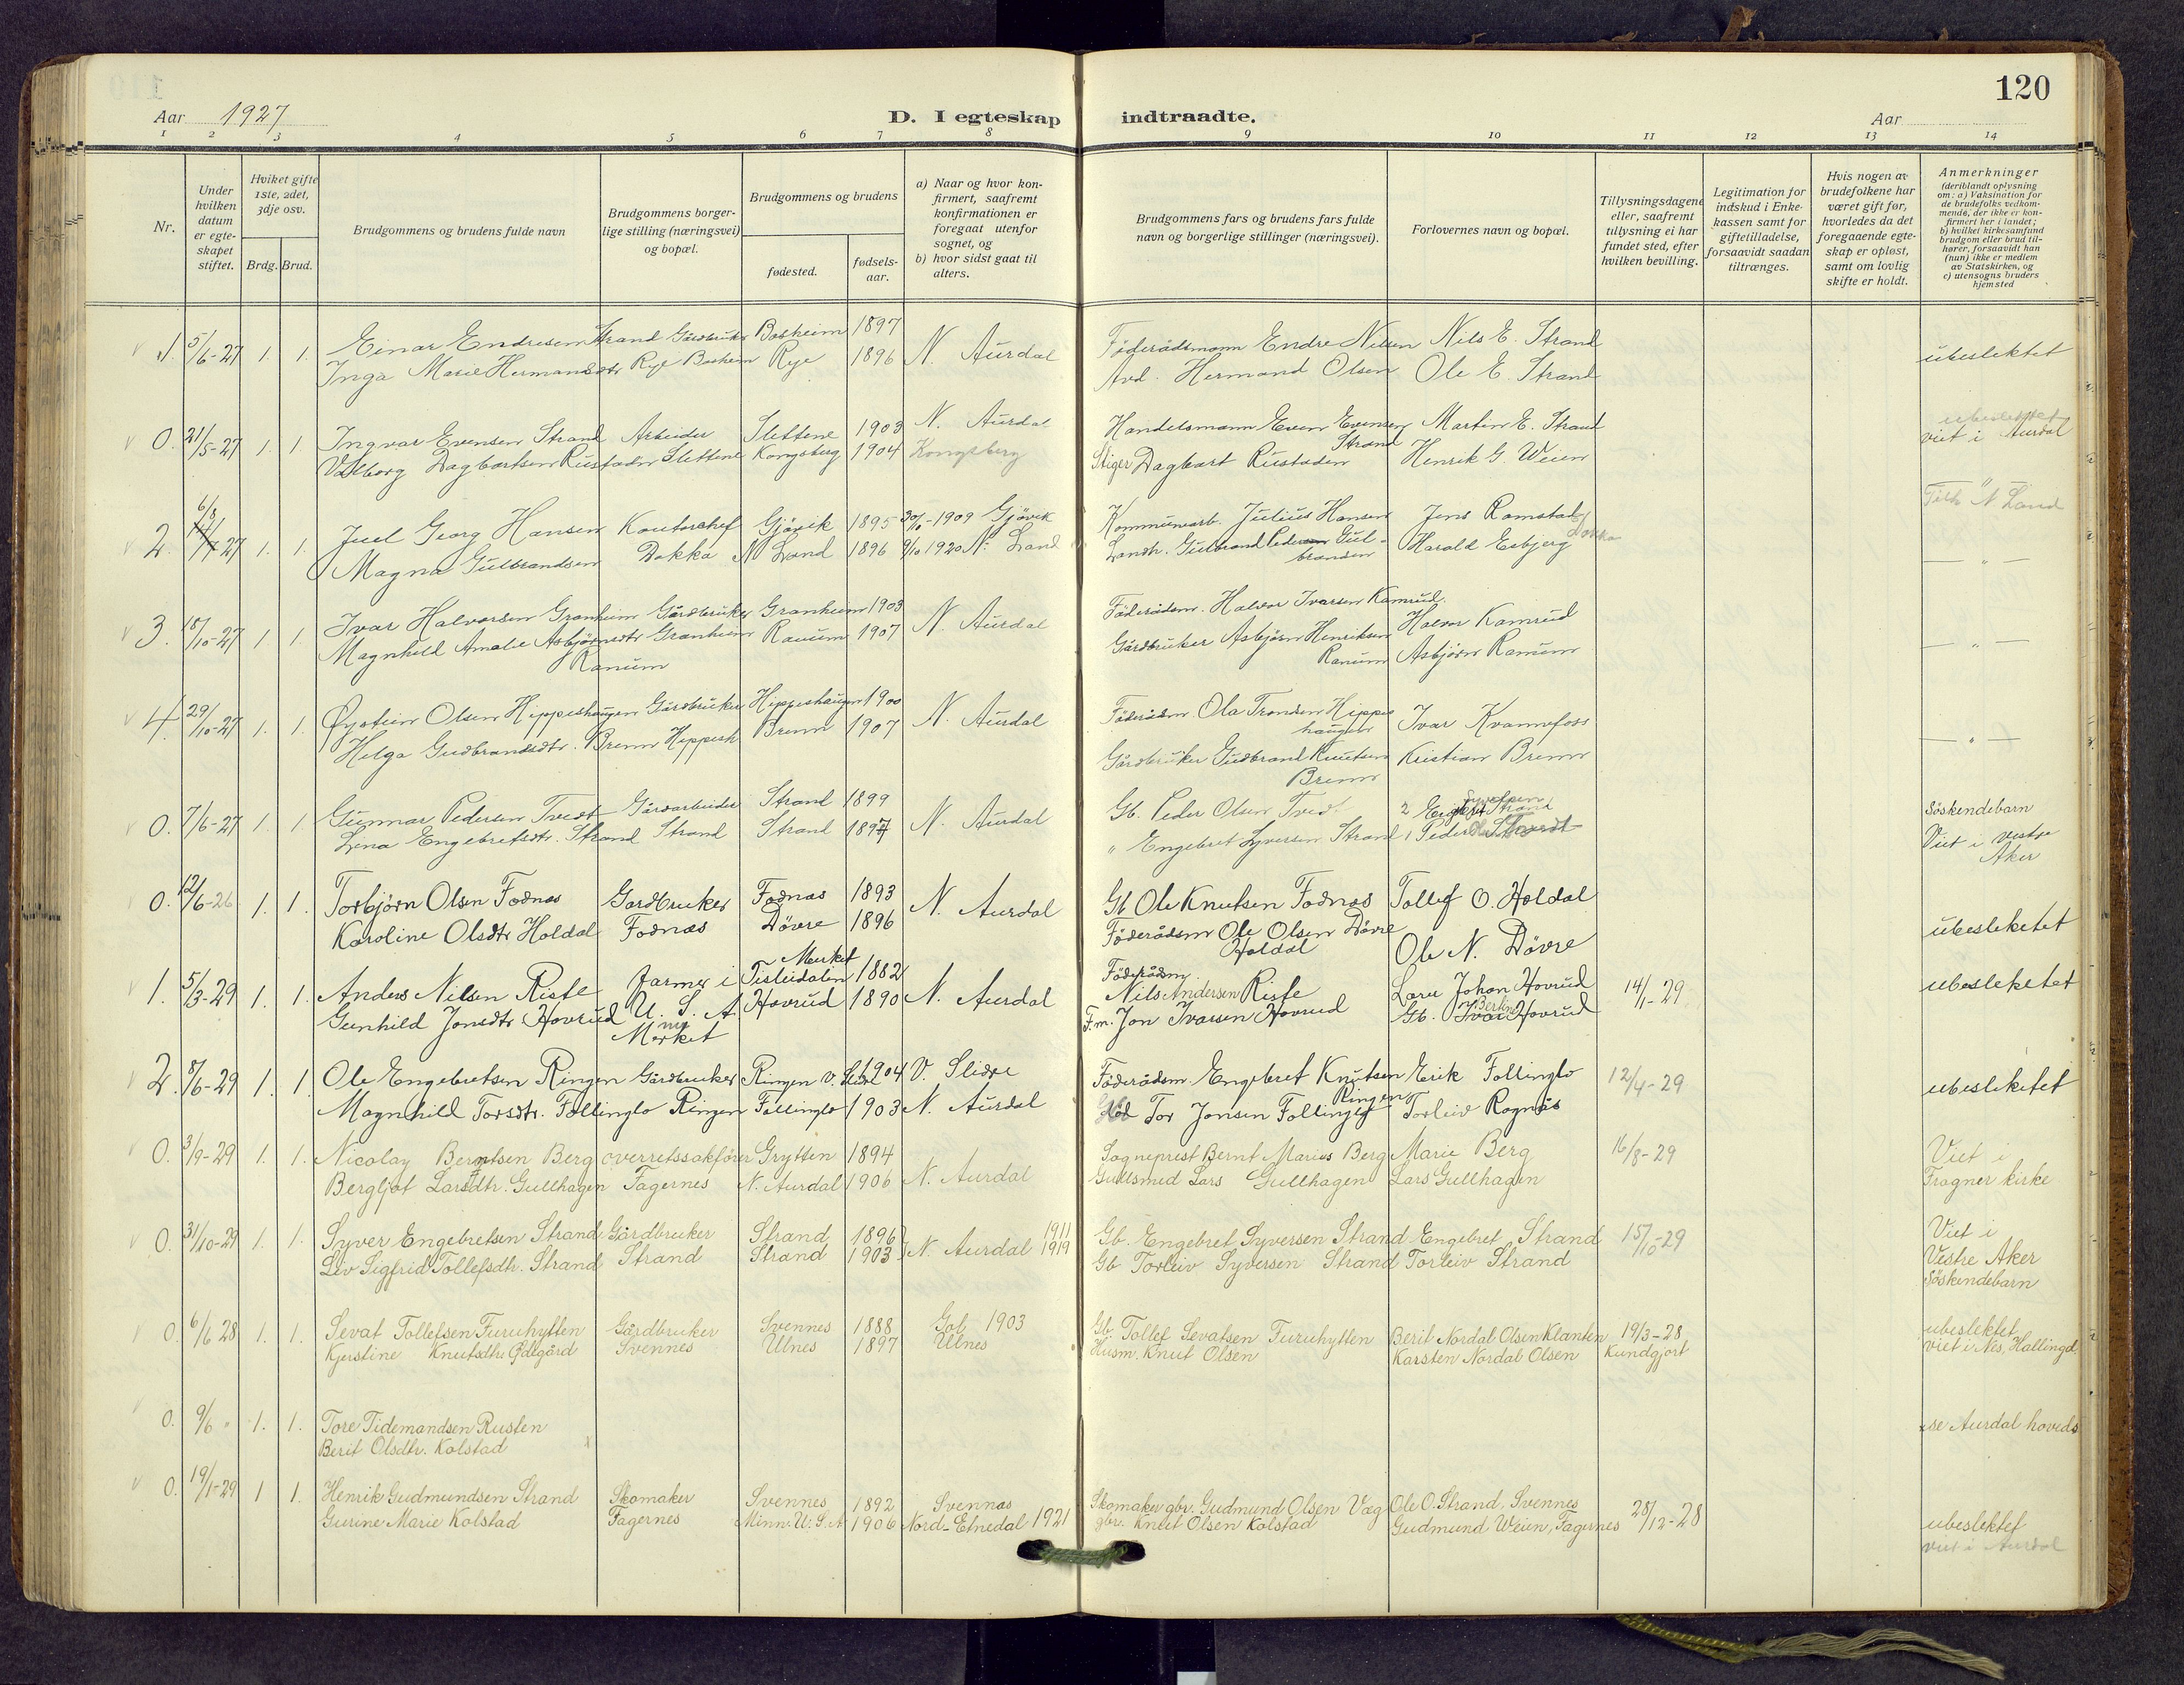 120
Aar 1927
D. I egteskap indtraadte.
Aar
1 2 3 4 5 6 7 8 9 10 11 12 13 14
Nr.
Under hvilken datum er egteskapet stiftet.
Hvilket gifte 1ste, 2det, 3dje osv.
Brdg. Brud.
Brudgommens og brudens fulde navn
Brudgommens borgerlige stilling (næringsvei) og bopæl.
Brudgommens og brudens
fødested. fødselsaar.
a) Naar og hvor konfirmert, saafremt konfirmationen er foregaat utenfor sognet, og
b) hvor sidst gaat til alters.
Brudgommens fars og brudens fars fulde navn og borgerlige stillinger (næringsvei).
Forlovernes navn og bopæl.
Tillysningsdagene eller, saafremt tillysning ei har fundet sted, efter hvilken bevilling.
Legitimation for indskud i Enkekassen samt for giftetilladelse, forsaavidt saadan tiltrænges.
Hvis nogen av brudefolkene har været gift før, hvorledes da det foregaaende egteskap er opløst, samt om lovlig skifte er holdt.
Anmerkninger
(deriblandt oplysning om: a) Vaksination for de brudefolks vedkommende, der ikke er konfirmert her i landet; b) hvilket kirkesamfund brudgom eller brud tilhører, forsaavidt han (hun) ikke er medlem av Statskirken, og c) utensogns bruders hjemsted
1. 5/6-27 1. 1. Einar Endresen Strand Gårdbruker Basheim 1897 N. Aurdal Föderådsmann Endre Nilsen Nils E. Strand ubeslektet
Inga Marie Hermandsdtr Rye Basheim Rye 1896 Avd. Hermand Olsen Ole E. Strand
0. 21/5-27 1. 1. Ingvar Evensen Strand Arbeider Slettene 1903 N. Aurdal Handelsmann Even Evensen Strand Marten E. Strand ubeslektet
Valborg Dagbartsen Rustaden Slettene Kongsberg 1904 Kongsberg Stiger Dagbart Rustaden Henrik G. Weien viet i Aurdal
2. 6/8 27 1. 1. Juel Georg Hansen Kontorchef Gjövik 1895 30/10-1909 Gjövik Kommunearb. Julius Hansen Jens Ramstad N Land
Magna Gulbrandsen Dokka N Land 1896 9/10 1920 N. Land Landh. Gulbrand Pedersen Gulbransen Harald Esbjerg Dokka — " —
3. 18/10-27 1. 1. Ivar Halvorsen Granheim Gårdbruker Granheim 1903 N. Aurdal Föderådsm. Halvor Ivarsen Kamrud. Halvor Kamrud
Magnhild Amalie Asbjörnsdtr Ranum Granheim Ranum 1907 Gårdbruker Asbjörn Henriksen Ranum Asbjörn Ranum — " —
4. 29/10-27 1. 1. Øystein Olsen Hippeshaugen Gårdbruker Hippeshaugen 1900 N. Aurdal Föderådsm. Ola Tronsen Hippeshaugen Ivar Kvannefoss
Helga Gudbrandsdtr. Brenn Hippesh Brenn 1907 Gårdbruker Gudbrand Knutsen Brenn Kristian Brenn — " —
0. 7/6-27 1. 1. Gunnar Pedersen Tvedt Gårdarbeider Strand 1899 N. Aurdal Gb. Peder Olsen Tvedt 2 Strand Söskendebarn
Lena Engebretsdtr. Strand Strand Strand 1897 " Engebret Syversen Strand 1 Peder Viet i vestre Aker
0. 12/6-26 1. 1. Torbjörn Olsen Fodnas Gardbruker Fodnas 1893 N. Aurdal Gb Ole Knutsen Fodnas Tollef O. Holdal
Karoline Olsdtr Holdal Fodnas Dövre 1896 Föderådsm Ole Olsen Dövre Holdal Ole N. Dövre ubesleketet
1. 5/3-29 1. 1. Anders Nilsen Riste Farmer i Merket Tisleidalen 1882 N. Aurdal Föderådsm. Nils Andersen Riste Johan Hovrud 14/1-29 ubesleketet
Gunhild Jonsdtr Hovrud U. S. A. nu Merket Hovrud 1890 F.m. Jon Ivarsen Hovrud Gb. Hovrud
2. 8/6-29 1. 1. Ole Engebretsen Ringen Gårdbruker Ringen V. Slidre 1904 V. Slidre Föderådsm. Engebret Knutsen Ringen Erik Follinglo 12/4-29 ubesleketet
Magnhild Torsdtr. Follinglo Ringen Follinglo 1903 N. Aurdal Tor Jonsen Follinglo Torleiv Rognås
0. 3/9-29 1. 1. Nicolay Berntsen Berg overretssakförer Grytten 1894 N. Aurdal Sogneprest Bernt Marius Berg Marie Berg 16/8-29 Viet i
Bergljot Larsdtr. Gullhagen Fagernes N. Aurdal 1906 Gullsmed Lars Gullhagen Lars Gullhagen Frogner kirke
0. 31/10-29 1. 1. Syver Engebretsen Strand Gårdbruker Strand 1896 N. Aurdal 1911 Gb. Engebret Syversen Strand Engebret Strand 15/10-29 Viet i
Liv Sigfrid Tollefsdtr. Strand Strand Strand 1903 1919 Gb Torleiv Syversen Strand Torleiv Strand Vestre Aker Söskendebarn
0. 6/6 28 1. 1. Sevat Tollefsen Furuhytten Gårdbruker Svennes 1888 Gol 1903 Gb. Tollef Sevatsen Furuhytten Berit Nordal Olsen Klanten 19/3-28 ubeslektet
Kjerstine Knutsdtr. Ødegård Svennes Ulnes 1897 Ulnes Husm. Knut Olsen Karsten Nordal Olsen Kundgjort viet i Nes, Hallingd.
0. 9/6 " 1. 1. Tore Tidemandsen Rusten se Aurdal hoveds
Berit Olsdtr. Kolstad
0. 19/1-29 1 1. Henrik Gudmundsen Strand Skomaker Svennes 1892 Svennes Skomaker gbr. Gudmund Olsen Væg Ole O. Strand, Svennes 28/12-28
Gurine Marie Kolstad Fagernes Minn. U. S. A 1906 Nord-Etnedal 1921 gbr. Knut Olsen Kolstad Gudmund Weien, Fagernes ubeslektet
viet i Aurdal